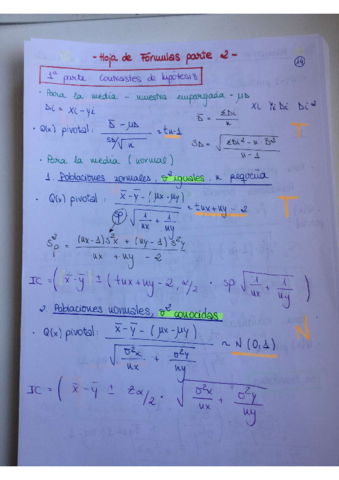 - Hoja de Fórmulas parte 2 -
1ª parte Contrastes de hipótesis
· Para la media - muestra emparejada - μD
Di = xi - yi
D̄ = ΣDi / n
xi yi Di Di²
· Q(x) pivotal: (D̄ - μD) / (SD/√n) ≈ tn-1
SD = √((ΣDi² - n · D̄²) / (n - 1))
T
· Para la media (normal)
1. Poblaciones normales, σ² iguales, n pequeña
· Q(x) pivotal: (x̄ - ȳ - (μx - μy)) / (sp √(1/nx + 1/ny)) ≈ tnx + ny - 2
T
S²p = ((nx - 1)S²x + (ny - 1)S²y) / (nx + ny - 2)
IC = (x̄ - ȳ ± (tnx + ny - 2, α/2 · sp √(1/nx + 1/ny))
2 Poblaciones normales, σ² conocidas
· Q(x) pivotal: (x̄ - ȳ - (μx - μy)) / √(σ²x/nx + σ²y/ny) ~ N(0,1)
N
IC = (x̄ - ȳ ± zα/2 · √(σ²x/nx + σ²y/ny))